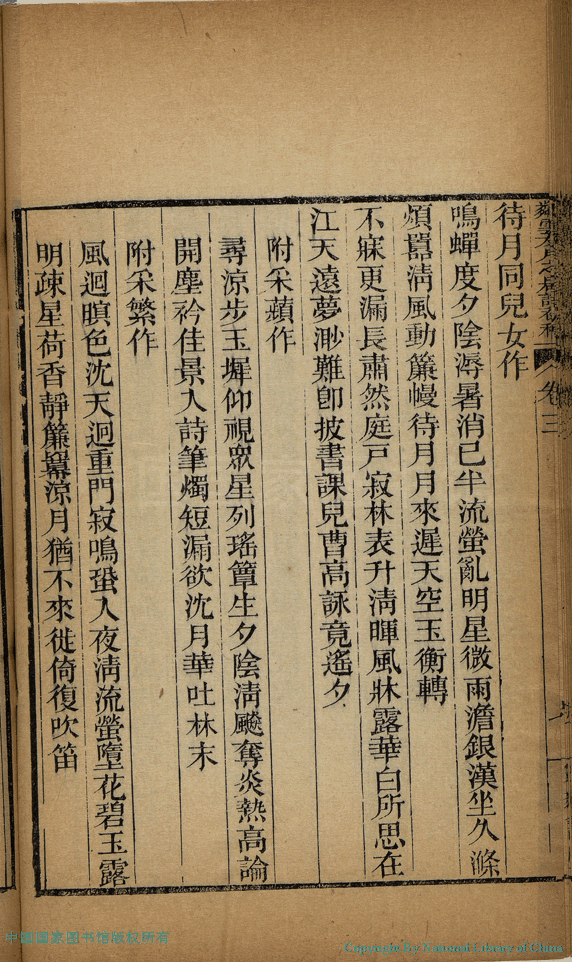 卷三
待月同兒女作
鳴蟬度夕陰溽暑消已半流螢亂明星微雨澹銀漢坐久滌
煩囂淸風動簾幔待月月來遲天空玉衡轉
不寐更漏長肅然庭戸寂林表升淸暉風牀露華白所思在
江天遠夢渺難卽披書課兒曹高詠竟遙夕
附采蘋作
尋涼步玉墀仰視眾星列瑤簟生夕陰淸飈奪炎熱高論
開塵衿佳景入詩筆燭短漏欲沈月華吐林末
附采蘩作
風迴暝色沈天迥重門寂鳴蛩入夜淸流螢墮花碧玉露
明疎星荷香靜簾幕涼月猶不來徙倚復吹笛
中國國家图书馆版权所有
Copyright By National Library of China